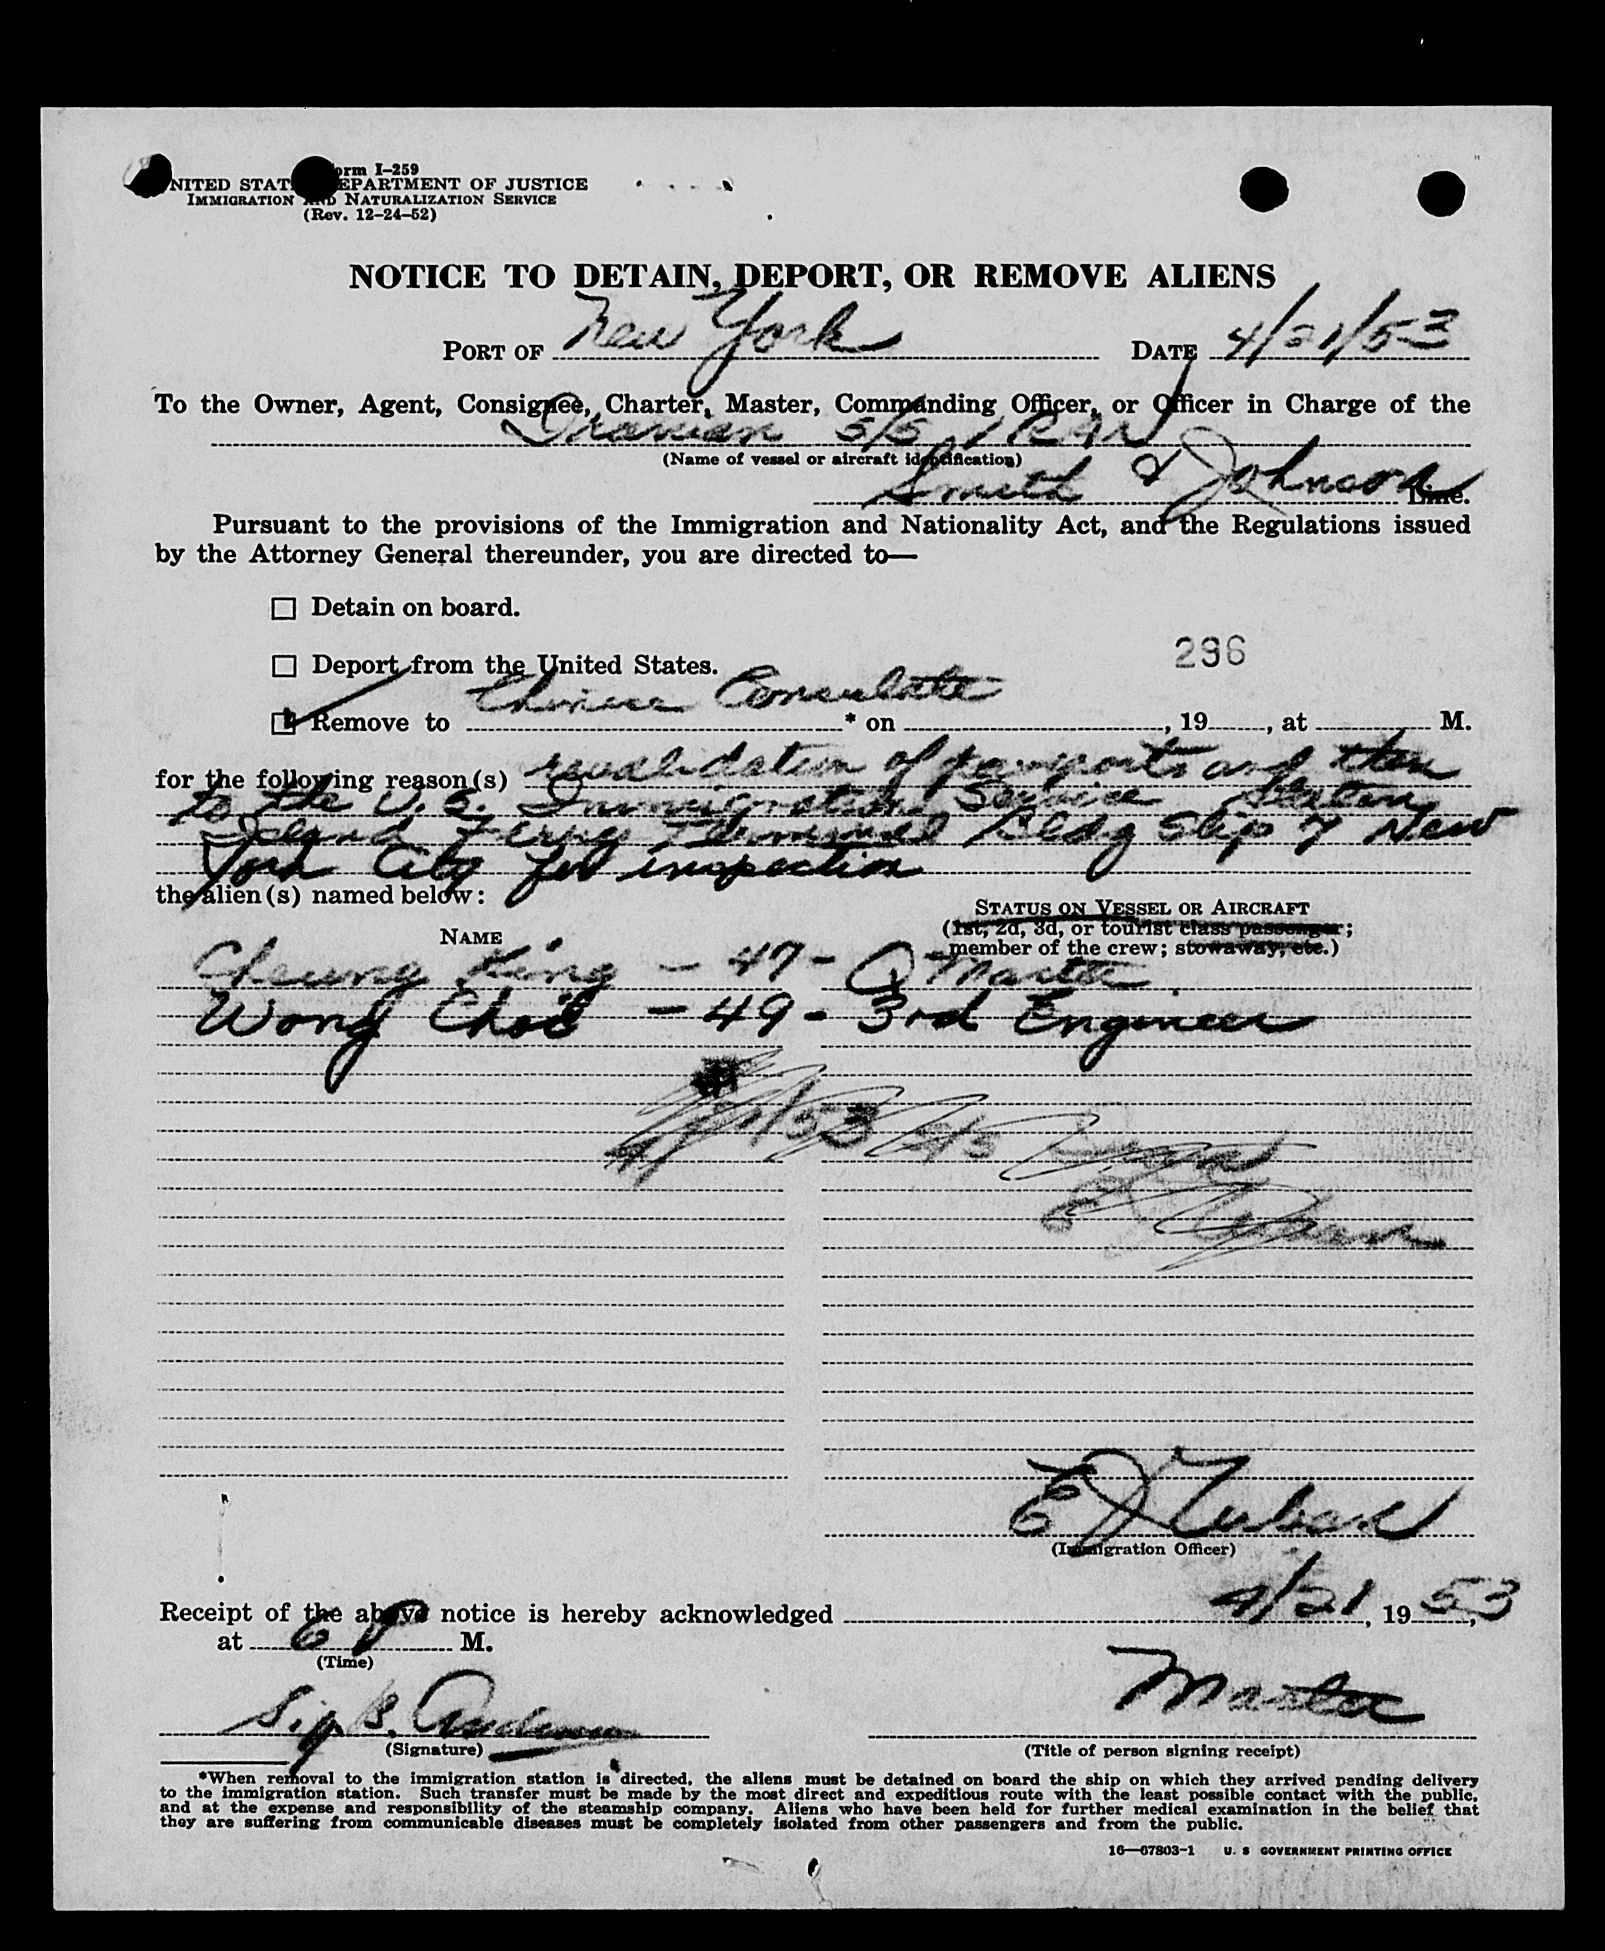 Form I-259
UNITED STATES DEPARTMENT OF JUSTICE
IMMIGRATION AND NATURALIZATION SERVICE
(Rev. 12-24-52)
NOTICE TO DETAIN, DEPORT, OR REMOVE ALIENS
PORT OF New York DATE 4/21/53
To the Owner, Agent, Consignee, Charter, Master, Commanding Officer, or Officer in Charge of the
Iranian S/S IRAN
(Name of vessel or aircraft identification)
Smith & Johnson Line.
Pursuant to the provisions of the Immigration and Nationality Act, and the Regulations issued
by the Attorney General thereunder, you are directed to—
Detain on board.
296
Deport from the United States.
Remove to Chinese Consulate * on , 19 , at M.
for the following reason(s) revalidation of passports and then
to the U.S. Immigration Service Staten
Island Ferry Terminal Bldg Slip 7 New
York City for inspection
the alien(s) named below:
STATUS ON VESSEL OR AIRCRAFT
(1st, 2d, 3d, or tourist class passenger;
NAME
member of the crew; stowaway, etc.)
Cheung King - 47 - Q Master
Wong Choi - 49 - 3rd Engineer
4/21/53
E J
(Immigration Officer)
Receipt of the above notice is hereby acknowledged 4/21, 19 53,
at 6 P M.
(Time)
Sig B. Andersen Master
(Signature) (Title of person signing receipt)
*When removal to the immigration station is directed, the aliens must be detained on board the ship on which they arrived pending delivery
to the immigration station. Such transfer must be made by the most direct and expeditious route with the least possible contact with the public,
and at the expense and responsibility of the steamship company. Aliens who have been held for further medical examination in the belief that
they are suffering from communicable diseases must be completely isolated from other passengers and from the public.
16—67803-1 U. S GOVERNMENT PRINTING OFFICE